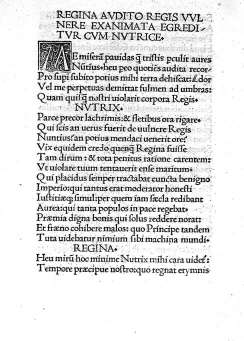 REGINA AVDITO REGIS VVL
NERE EXANIMATA EGREDI
TVR CVM NVTRICE.
VAE miseræ pauidas q̃ tristis pculit aures
Nūtius: heu pro quoties audita recor
Pro supi subito potius mihi terra dehiscat
Vel me perpetuas demittat fulmen ad umbras
Quam quisq̃ nostri uiolarit corpora Regis
NVTRIX.
Parce precor lachrimis: & fletibus ora rigare:
Qui scis an uerus fuerit de uulnere Regis
Nuntius? an potius mendaci uenerit ore?
Vix equidem credo quenq̃ Regina fuisse
Tam dirum: & tota penitus ratione carentem:
Vt uiolare tuum tentarit ense maritum:
Qui placidus semper tractabat cuncta benigno
Imperio: qui tantus erat moderator honesti
Iustitiæq; simul: per quem iam sæcla redibant
Aurea: qui tanta populos in pace regebat
Præmia digna bonis qui solus reddere norat:
Et fræno cohibere malos: quo Principe tandem
Tuta uidebatur nimium sibi machina mundi.
REGINA.
Heu mirū hoc minime Nutrix mihi cara uidet:
Tempore præcipue nostro: quo regnat erymnis